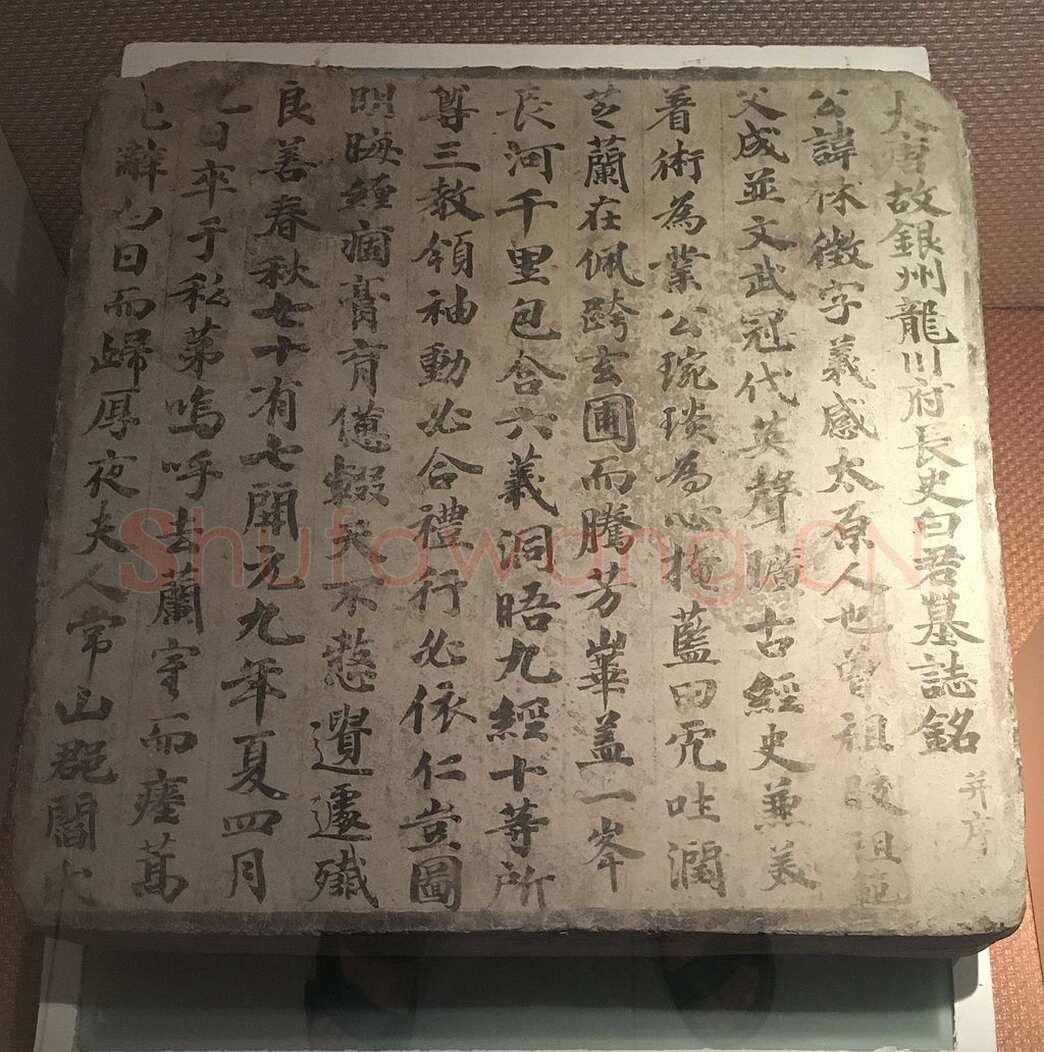 大唐故銀州龍川府長史白君墓誌銘 并序
公諱休徵字義感太原人也曾祖陵祖範
父成並文武冠代英聲曠古經史兼美
著術為業公琬琰為心掩藍田而吐潤
芝蘭在佩跨玄圃而騰芳崋盖一峯
長河千里包含六義洞晤九經十等所
尊三教領袖動必合禮行必依仁豈圖
明晦經痼膏肓僊輟矣不慗遺遽殲
良善春秋七十有七開元九年夏四月
七日卒于私第嗚呼去蘭室而瘞萬
辭白日而歸厚夜夫人常山郡閻氏
Shufawang.CN